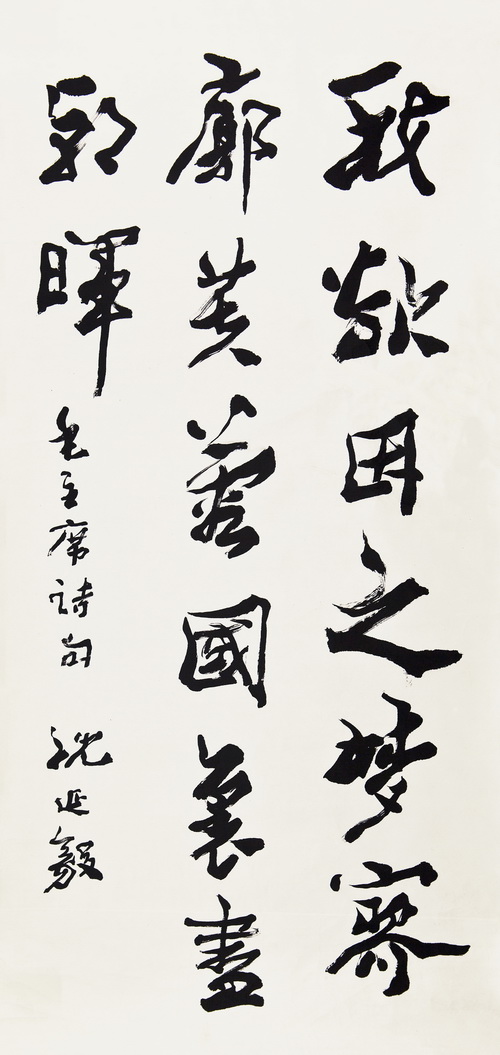 我欲因之梦寥
廓芙蓉國裏盡
朝暉
毛主席詩句 沈延毅